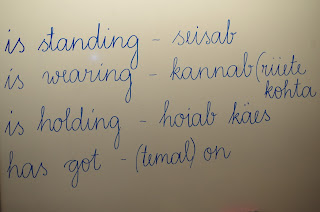 is standing - seisab
is wearing - kannab (riiete
kohta
is holding - hoiab käes
has got - (temal) on